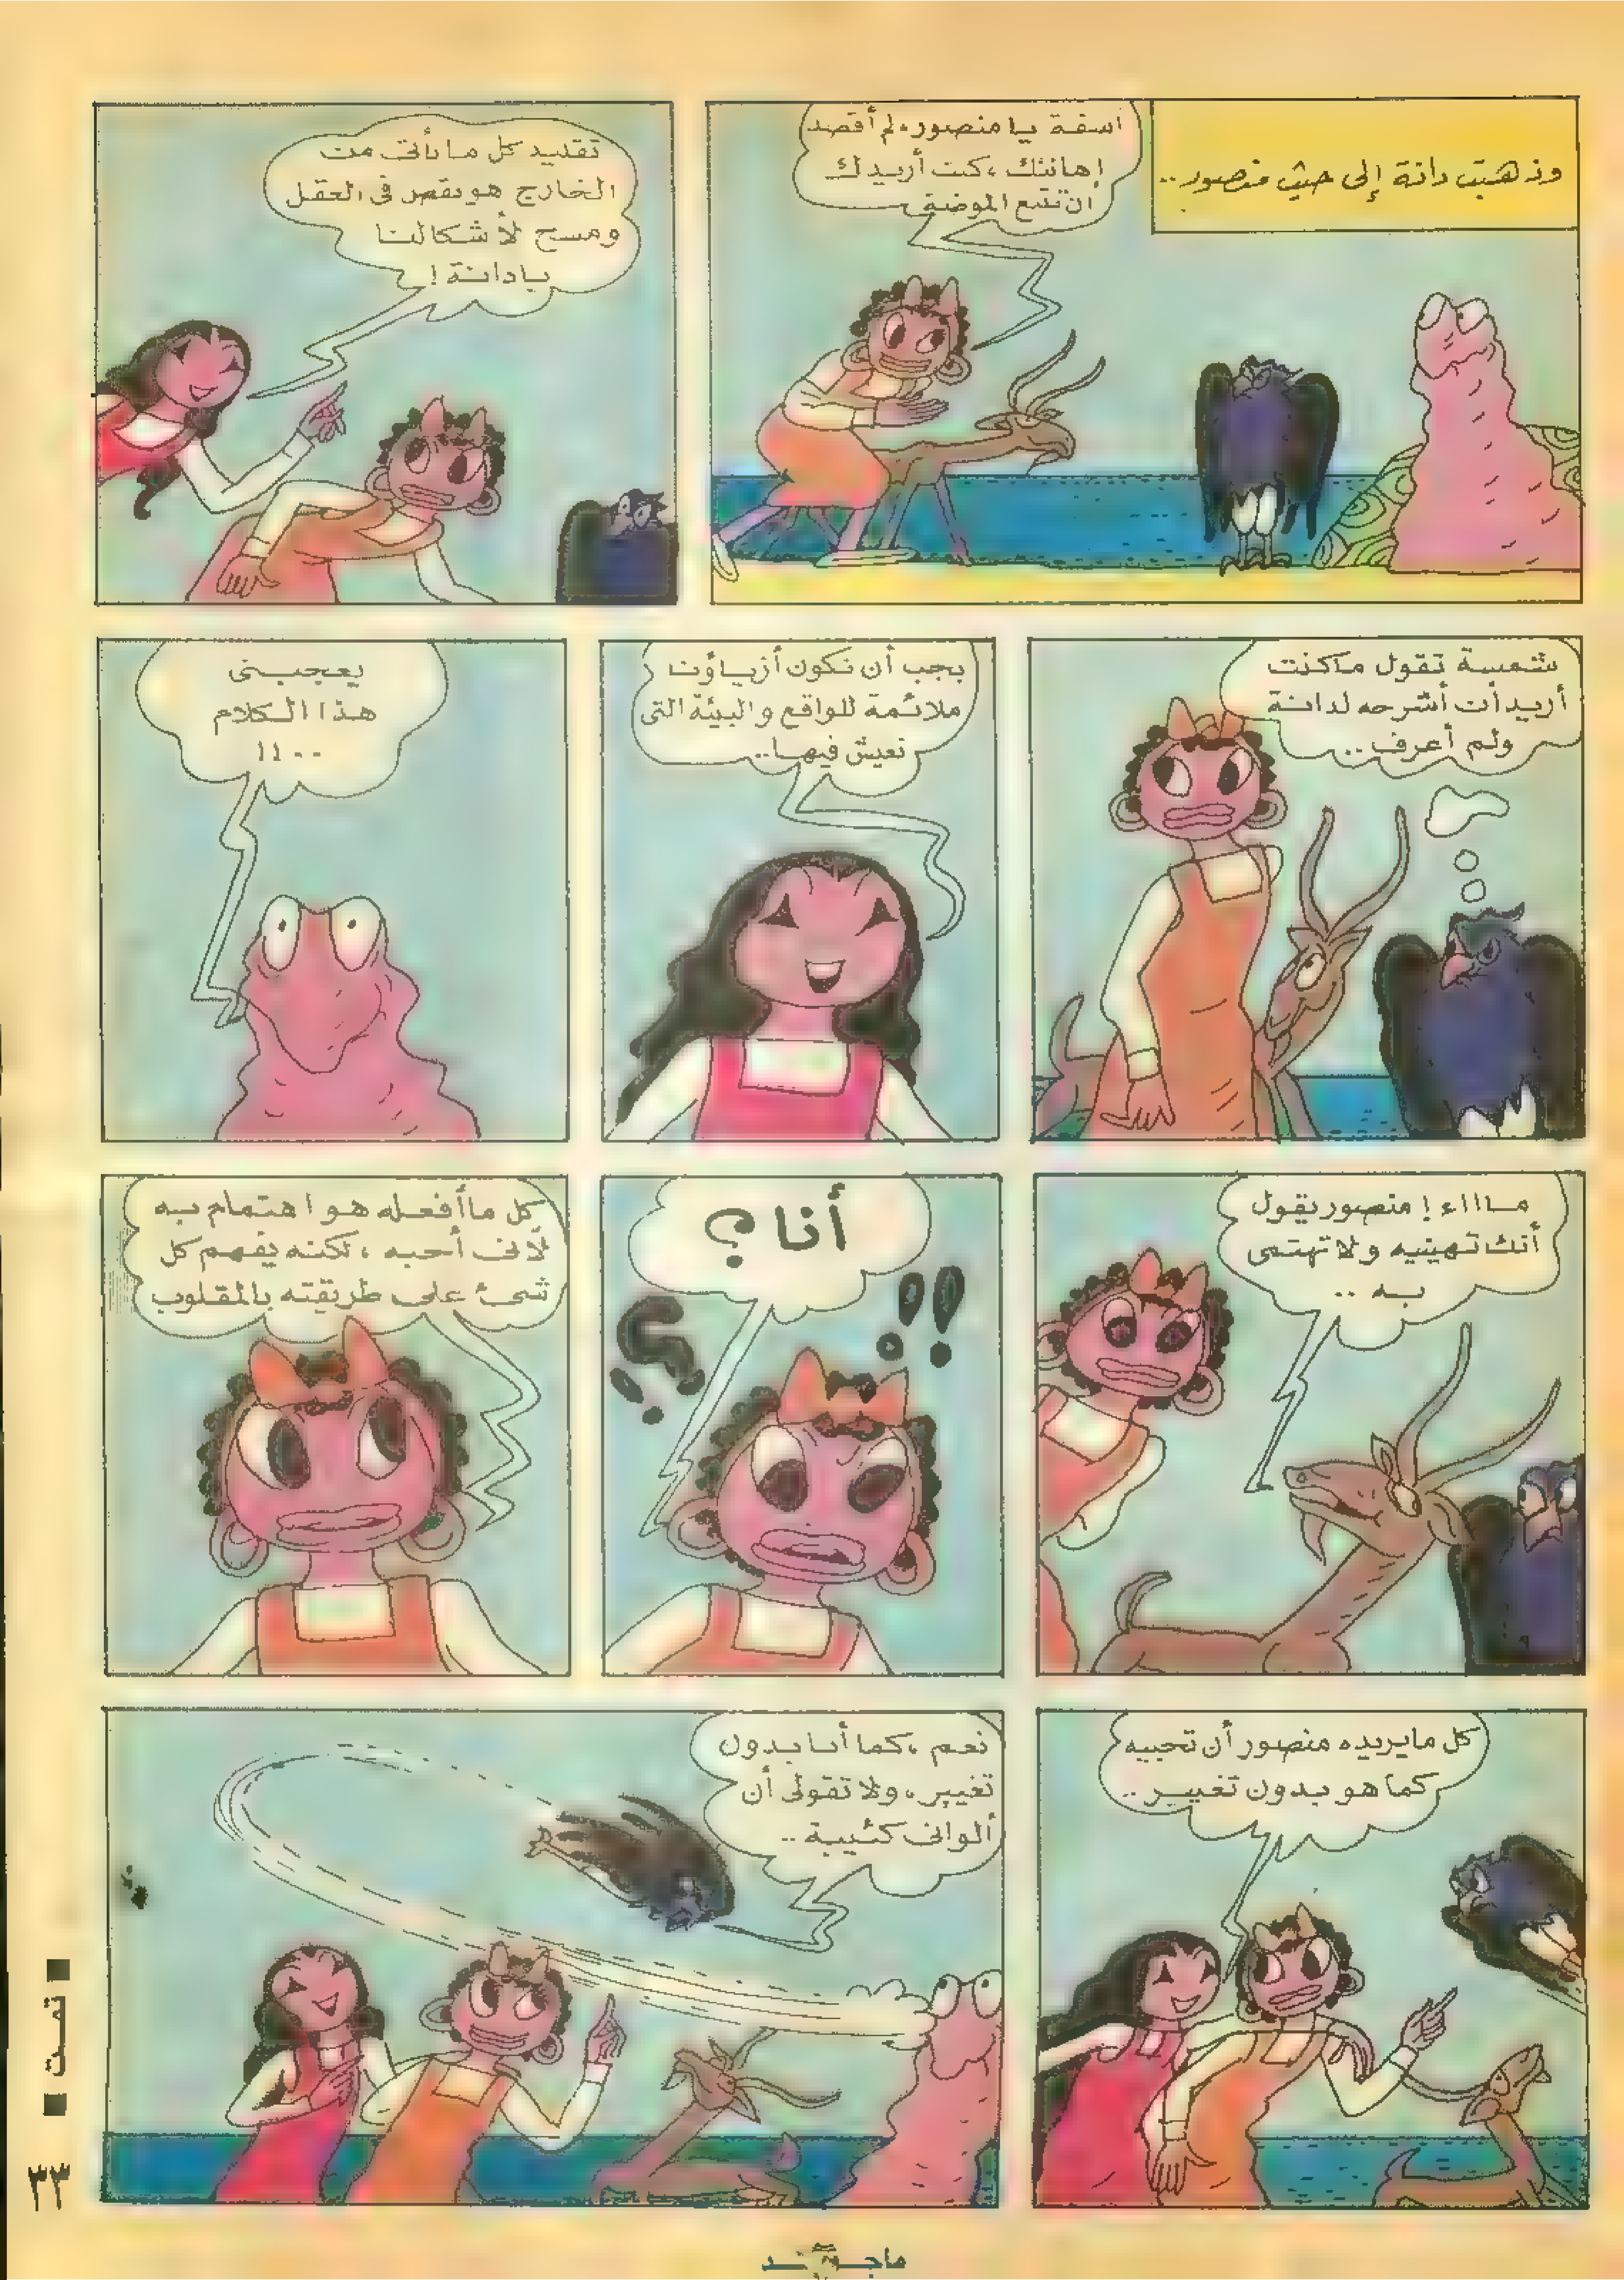 وذهبت دانة إلى حيث منصور..
آسفة يا منصور، لم أقصد
إهانتك، كنت أريدك
أن تتبع الموضة
تقليد كل ما يأتى من
الخارج هو نقص فى العقل
ومسح لأشكالنا
يا دانة !
شمسة تقول ما كنت
أريد أن أشرحه لدانة
ولم أعرف..
يجب أن تكون أزياؤنا
ملائمة للواقع والبيئة التى
نعيش فيها..
يعجبنى
هذا الكلام
..!!
مـاااء ! منصور يقول
أنك تهينيه ولا تهتمى
به ..
أنا ؟
؟!
!!
كل ما أفعله هو اهتمام به
لأنى أحبه ، لكنه يفهم كل
شىء على طريقته بالمقلوب
كل ما يريده منصور أن تحبيه
كما هو بدون تغيير ..
نعم ، كما أنا بدون
تغيير، ولا تقولى أن
ألوانى كئيبة ..
■ تمـت ■
٣٣
ماجد